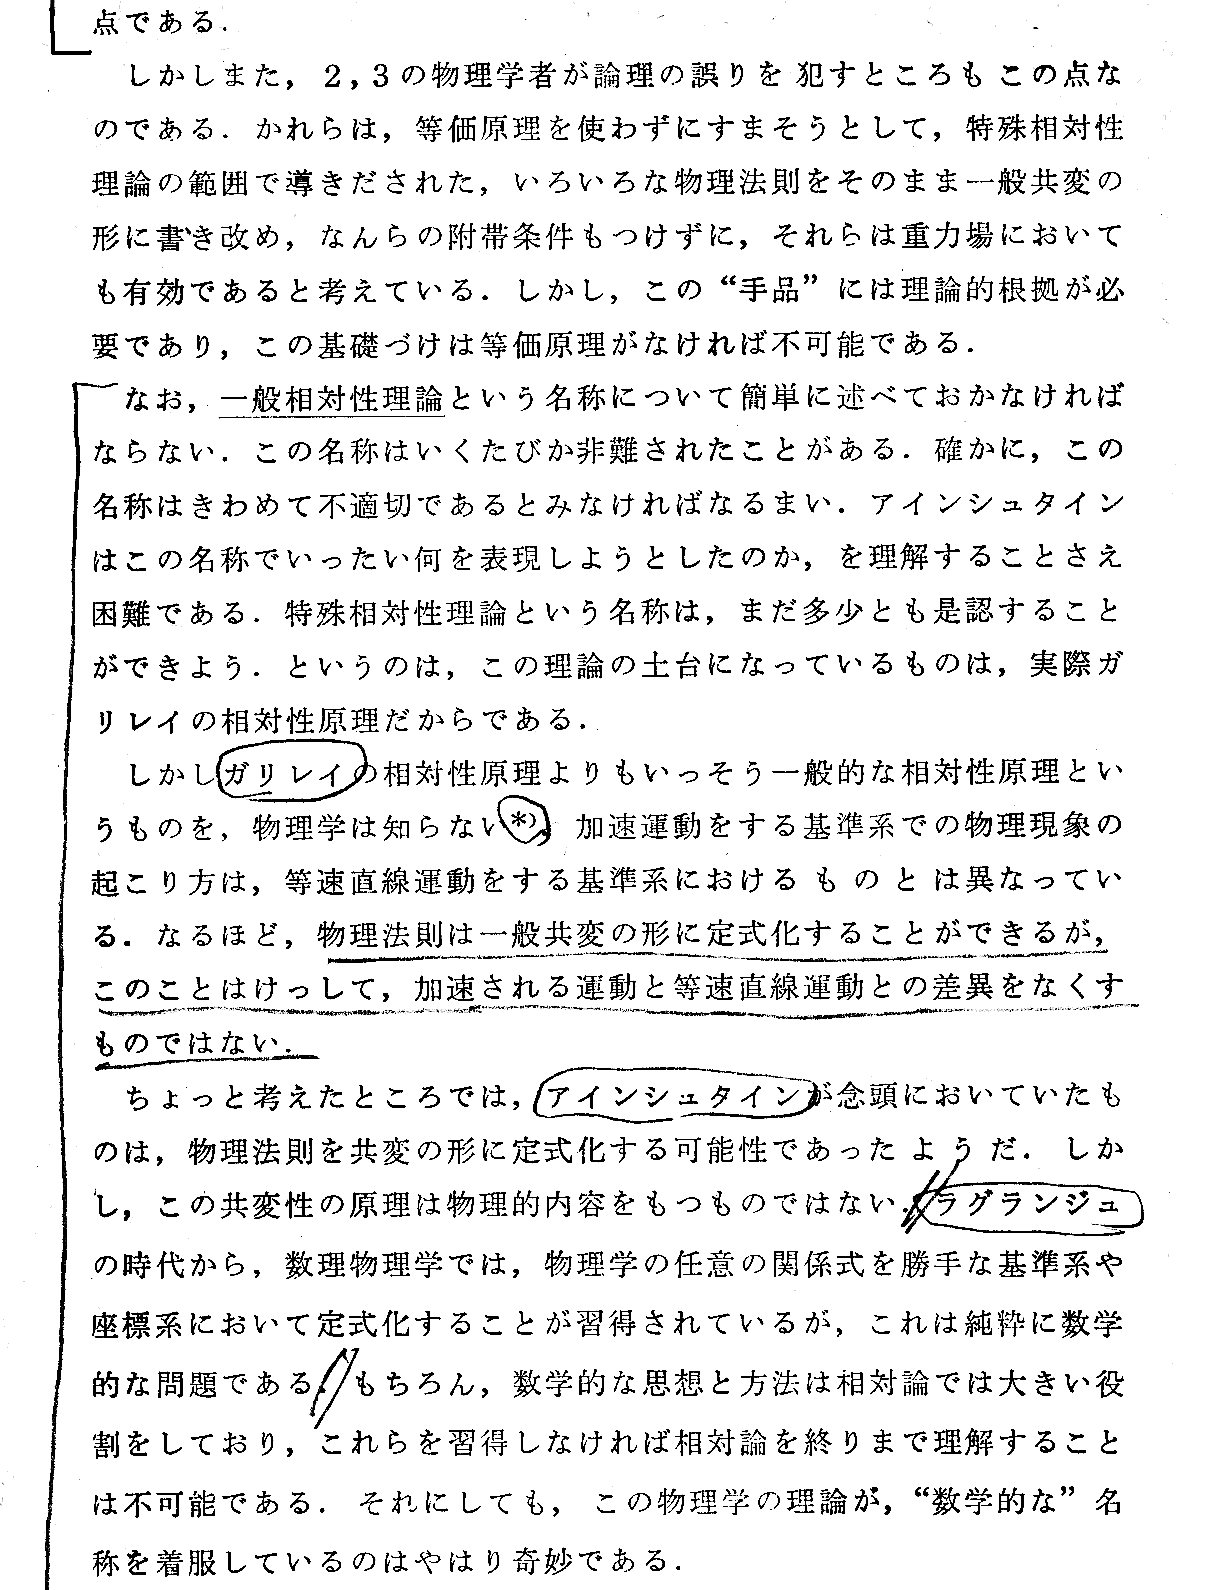 点である．
しかしまた，2，3の物理学者が論理の誤りを犯すところもこの点な
のである．かれらは，等価原理を使わずにすまそうとして，特殊相対性
理論の範囲で導きだされた，いろいろな物理法則をそのまま一般共変の
形に書き改め，なんらの附帯条件もつけずに，それらは重力場において
も有効であると考えている．しかし，この“手品”には理論的根拠が必
要であり，この基礎づけは等価原理がなければ不可能である．
なお，一般相対性理論という名称について簡単に述べておかなければ
ならない．この名称はいくたびか非難されたことがある．確かに，この
名称はきわめて不適切であるとみなければなるまい．アインシュタイン
はこの名称でいったい何を表現しようとしたのか，を理解することさえ
困難である．特殊相対性理論という名称は，まだ多少とも是認すること
ができよう．というのは，この理論の土台になっているものは，実際ガ
リレイの相対性原理だからである．
しかしガリレイの相対性原理よりもいっそう一般的な相対性原理とい
うものを，物理学は知らない*)．加速運動をする基準系での物理現象の
起こり方は，等速直線運動をする基準系におけるものとは異なってい
る．なるほど，物理法則は一般共変の形に定式化することができるが，
このことはけっして，加速される運動と等速直線運動との差異をなくす
ものではない．
ちょっと考えたところでは，アインシュタインが念頭においていたも
のは，物理法則を共変の形に定式化する可能性であったようだ．しか
し，この共変性の原理は物理的内容をもつものではない．ラグランジュ
の時代から，数理物理学では，物理学の任意の関係式を勝手な基準系や
座標系において定式化することが習得されているが，これは純粋に数学
的な問題である．もちろん，数学的な思想と方法は相対論では大きい役
割をしており，これらを習得しなければ相対論を終りまで理解すること
は不可能である．それにしても，この物理学の理論が，“数学的な”名
称を着服しているのはやはり奇妙である．